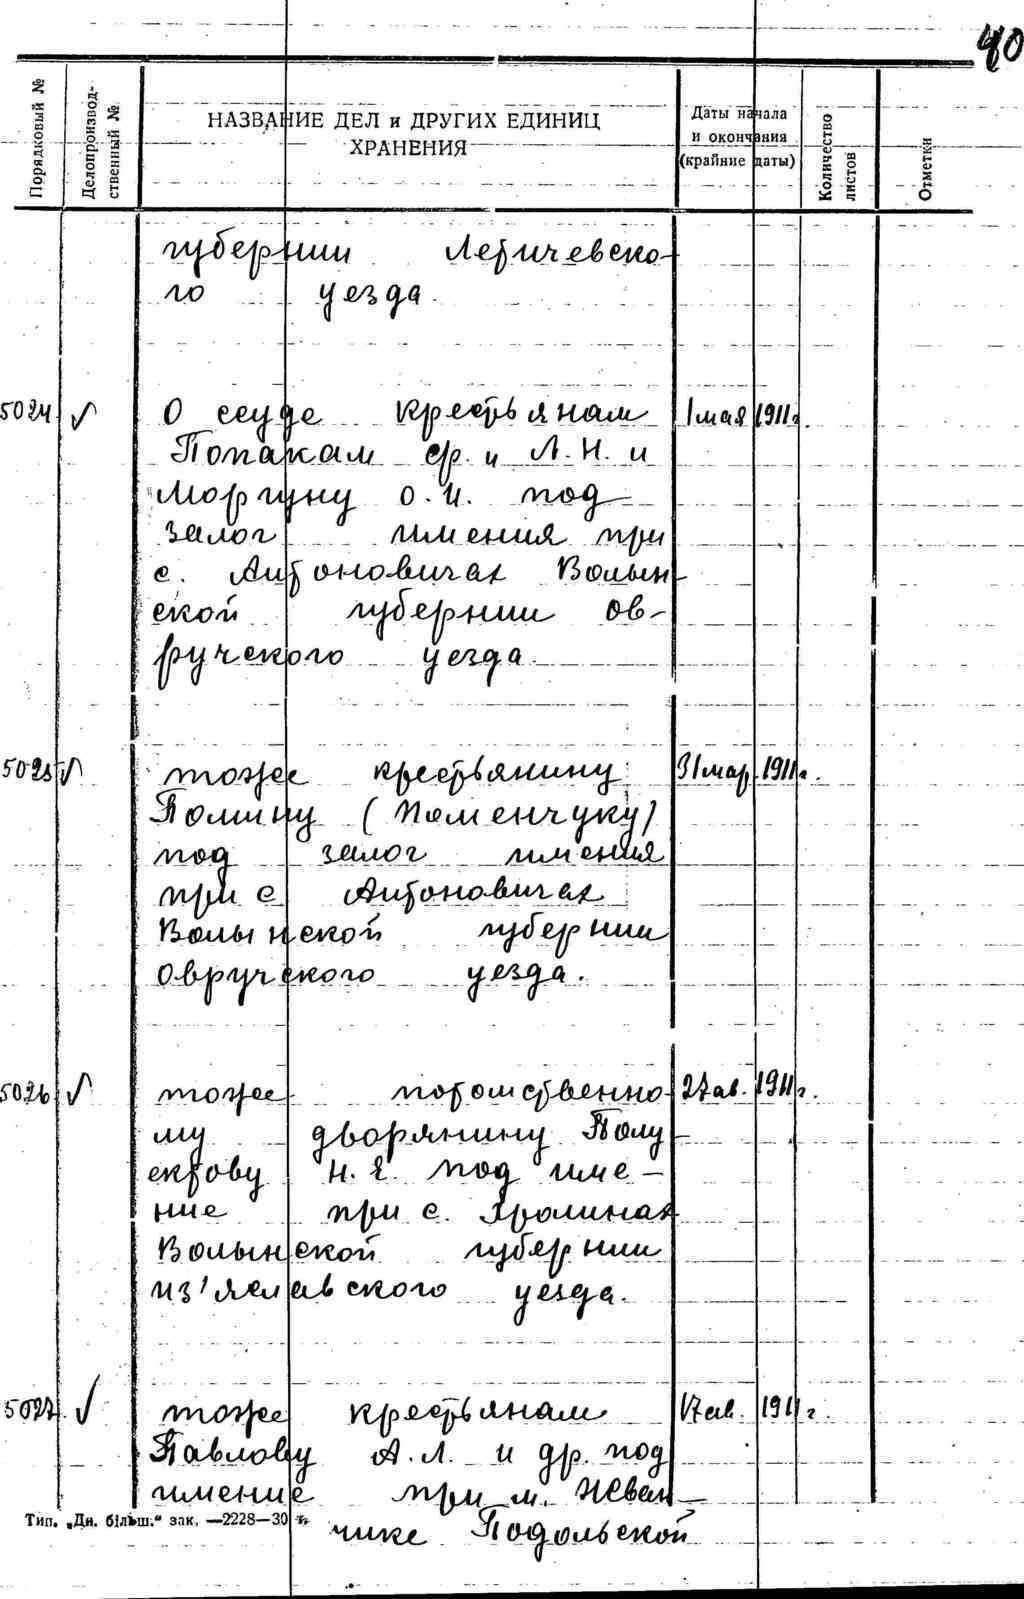 40
Порядковый №
Делопроизвод-
ственный №
НАЗВАНИЕ ДЕЛ и ДРУГИХ ЕДИНИЦ
ХРАНЕНИЯ
Даты начала
и окончания
(крайние даты)
Количество
листов
Отметки
губернии Летичевско-
го уезда.
5024 √ О ссуде крестьянам 1 мая 1911г.
Попакам Ф. и Л.Н. и
Моргуну О.И. под
залог имения при
с. Антоновичах Волын-
ской губернии Ов-
ручского уезда.
5025 √ тоже крестьянину 31 мар. 1911г.
Помину (Поменчуку)
под залог имения
при с. Антоновичах
Волынской губернии
Овручского уезда.
5026 √ тоже потомственно- 27 ав. 1911г.
му дворянину Полу-
ектову Н.Е. под име-
ние при с. Хролинах
Волынской губернии
из'яславского уезда.
5027 √ тоже крестьянам 17 ав. 1911г.
Павлову А.Л. и др. под
имение при м.
Тип. „Дн. більш.“ зак. —2228—30
чике Подольской